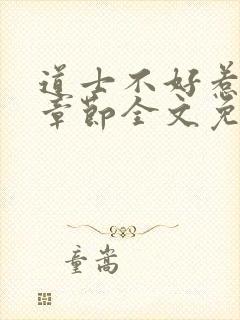 道士不好惹
章節全文免
童嵩